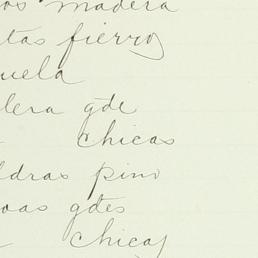 os madera
tas fierro
uela
lera gde
chicas
ldras pino
oas gdes
chicas